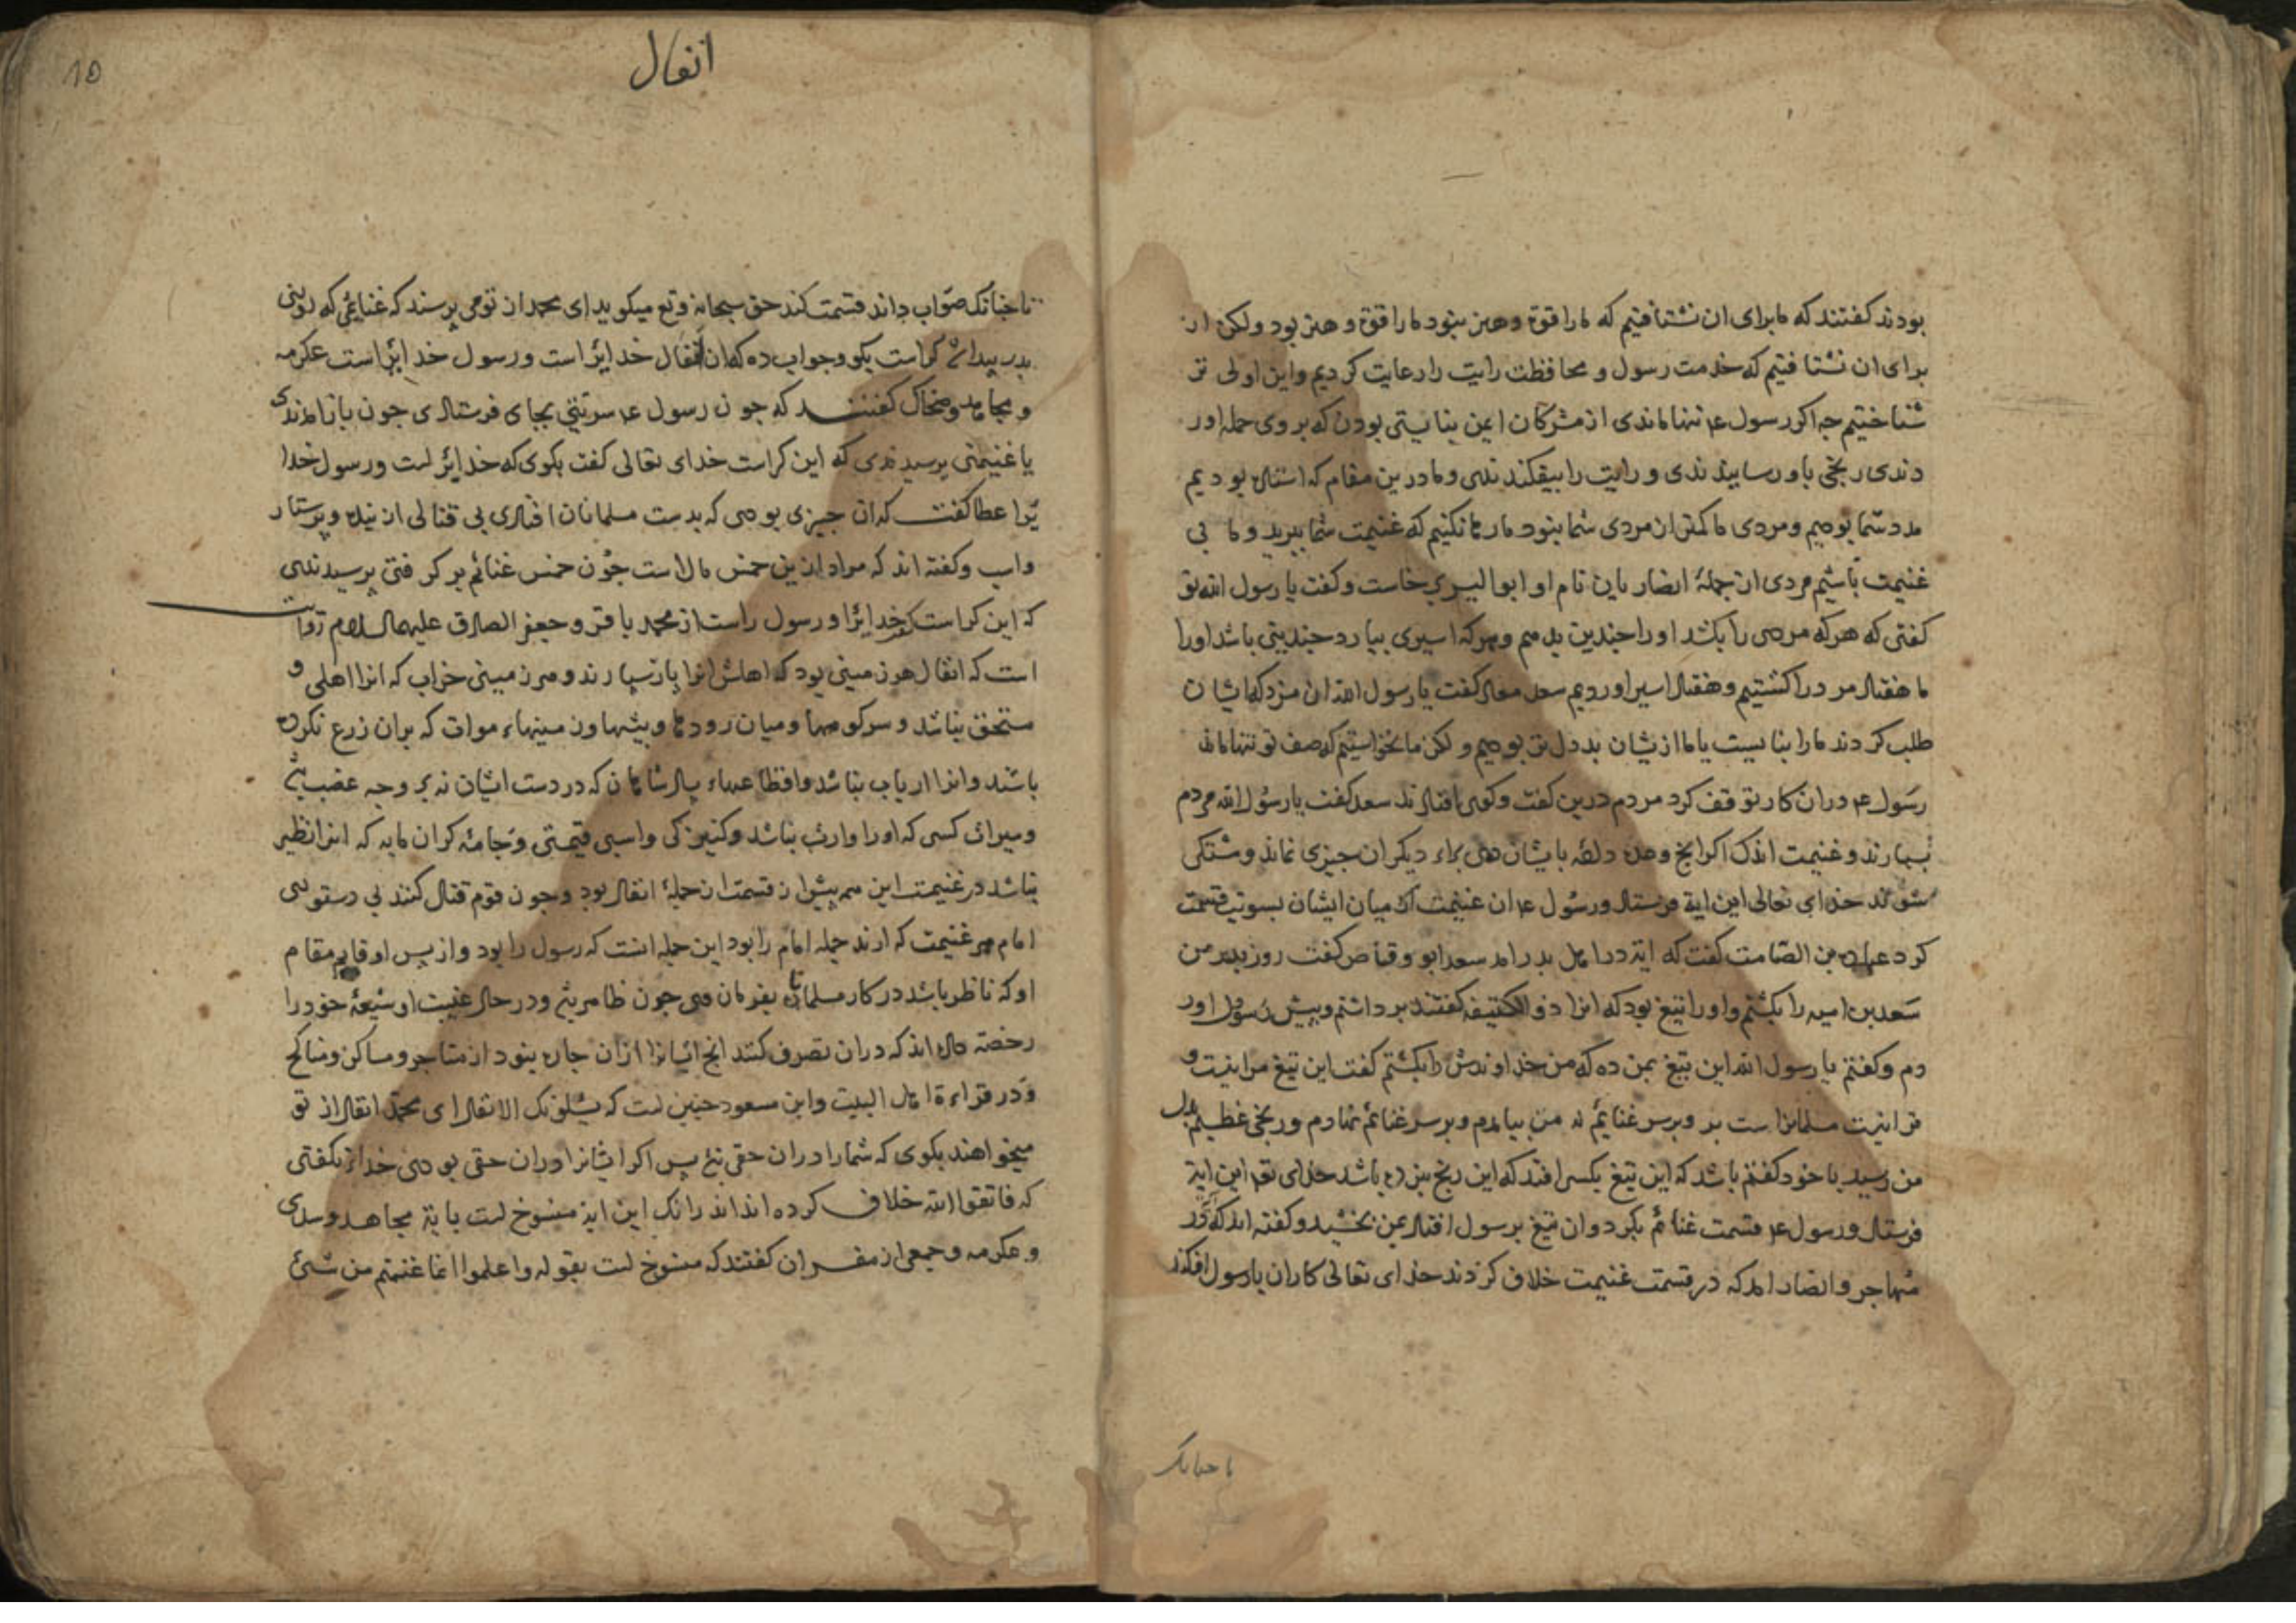 بودند گفتند که ما برای ان نشتافتیم که ما را قوة و هنر نبود ما را قوة و هنر بود ولکن از
برای ان نشتافتیم که خدمت رسول و محافظت رایت را رعایت کردیم و این اولی تر
شناختیم چه اکر رسول ع تنها ماندی از مشرکان ایمن نبایستی بودن که بر وی حمله اور
دندی رنجی باو رسانیدندی و رایت را بیفکندندی و ما درین مقام که استاده بودیم
مدد شما بودیم و مردی ما کمتر از مردی شما نبود ما رها نکنیم که غنیمت شما ببرید و ما بی
غنیمت باشیم مردی از جملهٔ انصار نام او ابوالیسر برخاست و گفت یا رسول الله تو
کفتی که هر که مردی را بکشد او را چندین بدهم و هر که اسیری بیارد چندینی باشد او را
ما هفتاد مرد را کشتیم و هفتاد اسیر اوردیم سعد معاذ کفت یا رسول الله ان مزد که ایشان
طلب کردند ما را بنایست یا ما از یشان بددل تر بودیم ولکن ما نخواستیم که صف تو تنها ماند
رسول ع دران کار توقف کرد مردم درین کفت و کوی افتادند سعد کفت یا رسول الله مردم
بسیارند و غنیمت اندک اکر انج وعده داده بایشان دهی براء دیکران چیزی نماند و شتکی
شوند خدای تعالی این ایة فرستاد و رسول ع ان غنیمت میان ایشان بسویت قسمت
کرد عباده بن الصامت کفت که ایة در اهل بدر امد سعد ابو وقاص کفت روز بدر من
سعد بن امیه را بکشتم و او را تیغ بود که انرا ذوالکتیفه کفتند برداشتم و پیش رسول اور
دم و کفتم یا رسول الله این تیغ بمن ده که من خداوندش را بکشتم کفت این تیغ مرا نیست و
ترا نیست مسلمانراست بر و بر سر غنایم نه من بیامدم و بر سر غنائم نهادم و رنجی عظیم بدل
من رسید با خود کفتم باشد که این تیغ بکسی افتد که این رنج نبرده باشد خدای تع این ایة
فرستاد و رسول ع قسمت غنائم بکرد و ان تیغ برسول افتاد بمن بخشید و کفته اند که در
مهاجر و انصار امد که در قسمت غنیمت خلاف کردند خدای تعالی کار ان با رسول افکند
تا چنانک
10
انفال
تا چنانک صواب داند قسمت کند حق سبحانه و تع میکوید ای محمد از تو می پرسند که غنایمی که روز
بدر پیدا شد کراست بکو و جواب ده که انفال خدایراست و رسول خدایراست عکرمه
و مجاهد و ضحاک کفتند که چون رسول ع سریتی بجای فرستادی چون باز امدندی
با غنیمتی پرسیدندی که این کراست خدای تعالی کفت بکوی که خدایراست و رسول خدا
یرا عطا کفت که ان چیزی بودی که بدست مسلمانان افتادی بی قتالی از بنده و پرستار
واسب و کفته اند که مراد ازین خمس مالاست چون خمس غنائم بر کرفتی پرسیدندی
که این کراست خدایرا و رسول راست از محمد باقر و جعفر الصادق علیهما السلام روات
است که انفال هر زمینی بود که اهلش انرا باز سپارند و هر زمینی خراب که انرا اهلی و
مستحق نباشد و سر کوهها و میان رودها و بیشها و زمینهاء موات که بران زرع نکرده
باشند و انرا ارباب نباشد و اقطاعهاء پادشاهان که در دست ایشان نه بر وجه غصب
و میراث کسی که او را وارث نباشد و کنیزکی و اسپی قیمتی و جامهٔ کران مایه که انرا نظیر
نباشد در غنیمت این همه پیش از قسمت از جملهٔ انفال بود و چون قوم قتال کنند بی دستوری
امام هر غنیمت که ارند جمله امام را بود این جمله انست که رسول را بود و از پس او قایم مقام
او که ناظر باشد در کار مسلمانان بفرمان وی چون ظاهر و در حال غیبت او شیعهٔ خود را
رخصة داده اند که دران تصرف کنند انج ایشانرا ازان چاره نبود از متاجر و مساکن و مناکح
و در قراءة اهل البیت و ابن مسعود چنین است که یسئلونک الانفال ای محمد انفال از تو
میخواهند بکوی که شما را دران حقی نه پس اکر ایشانرا دران حقی بودی خدای نکفتی
که فاتقوا الله خلاف کرده اند اندرانک این ایة منسوخ است یا نه مجاهد و سدی
و عکرمه و جمعی از مفسران کفتند که منسوخ است بقوله واعلموا انما غنمتم من شئ